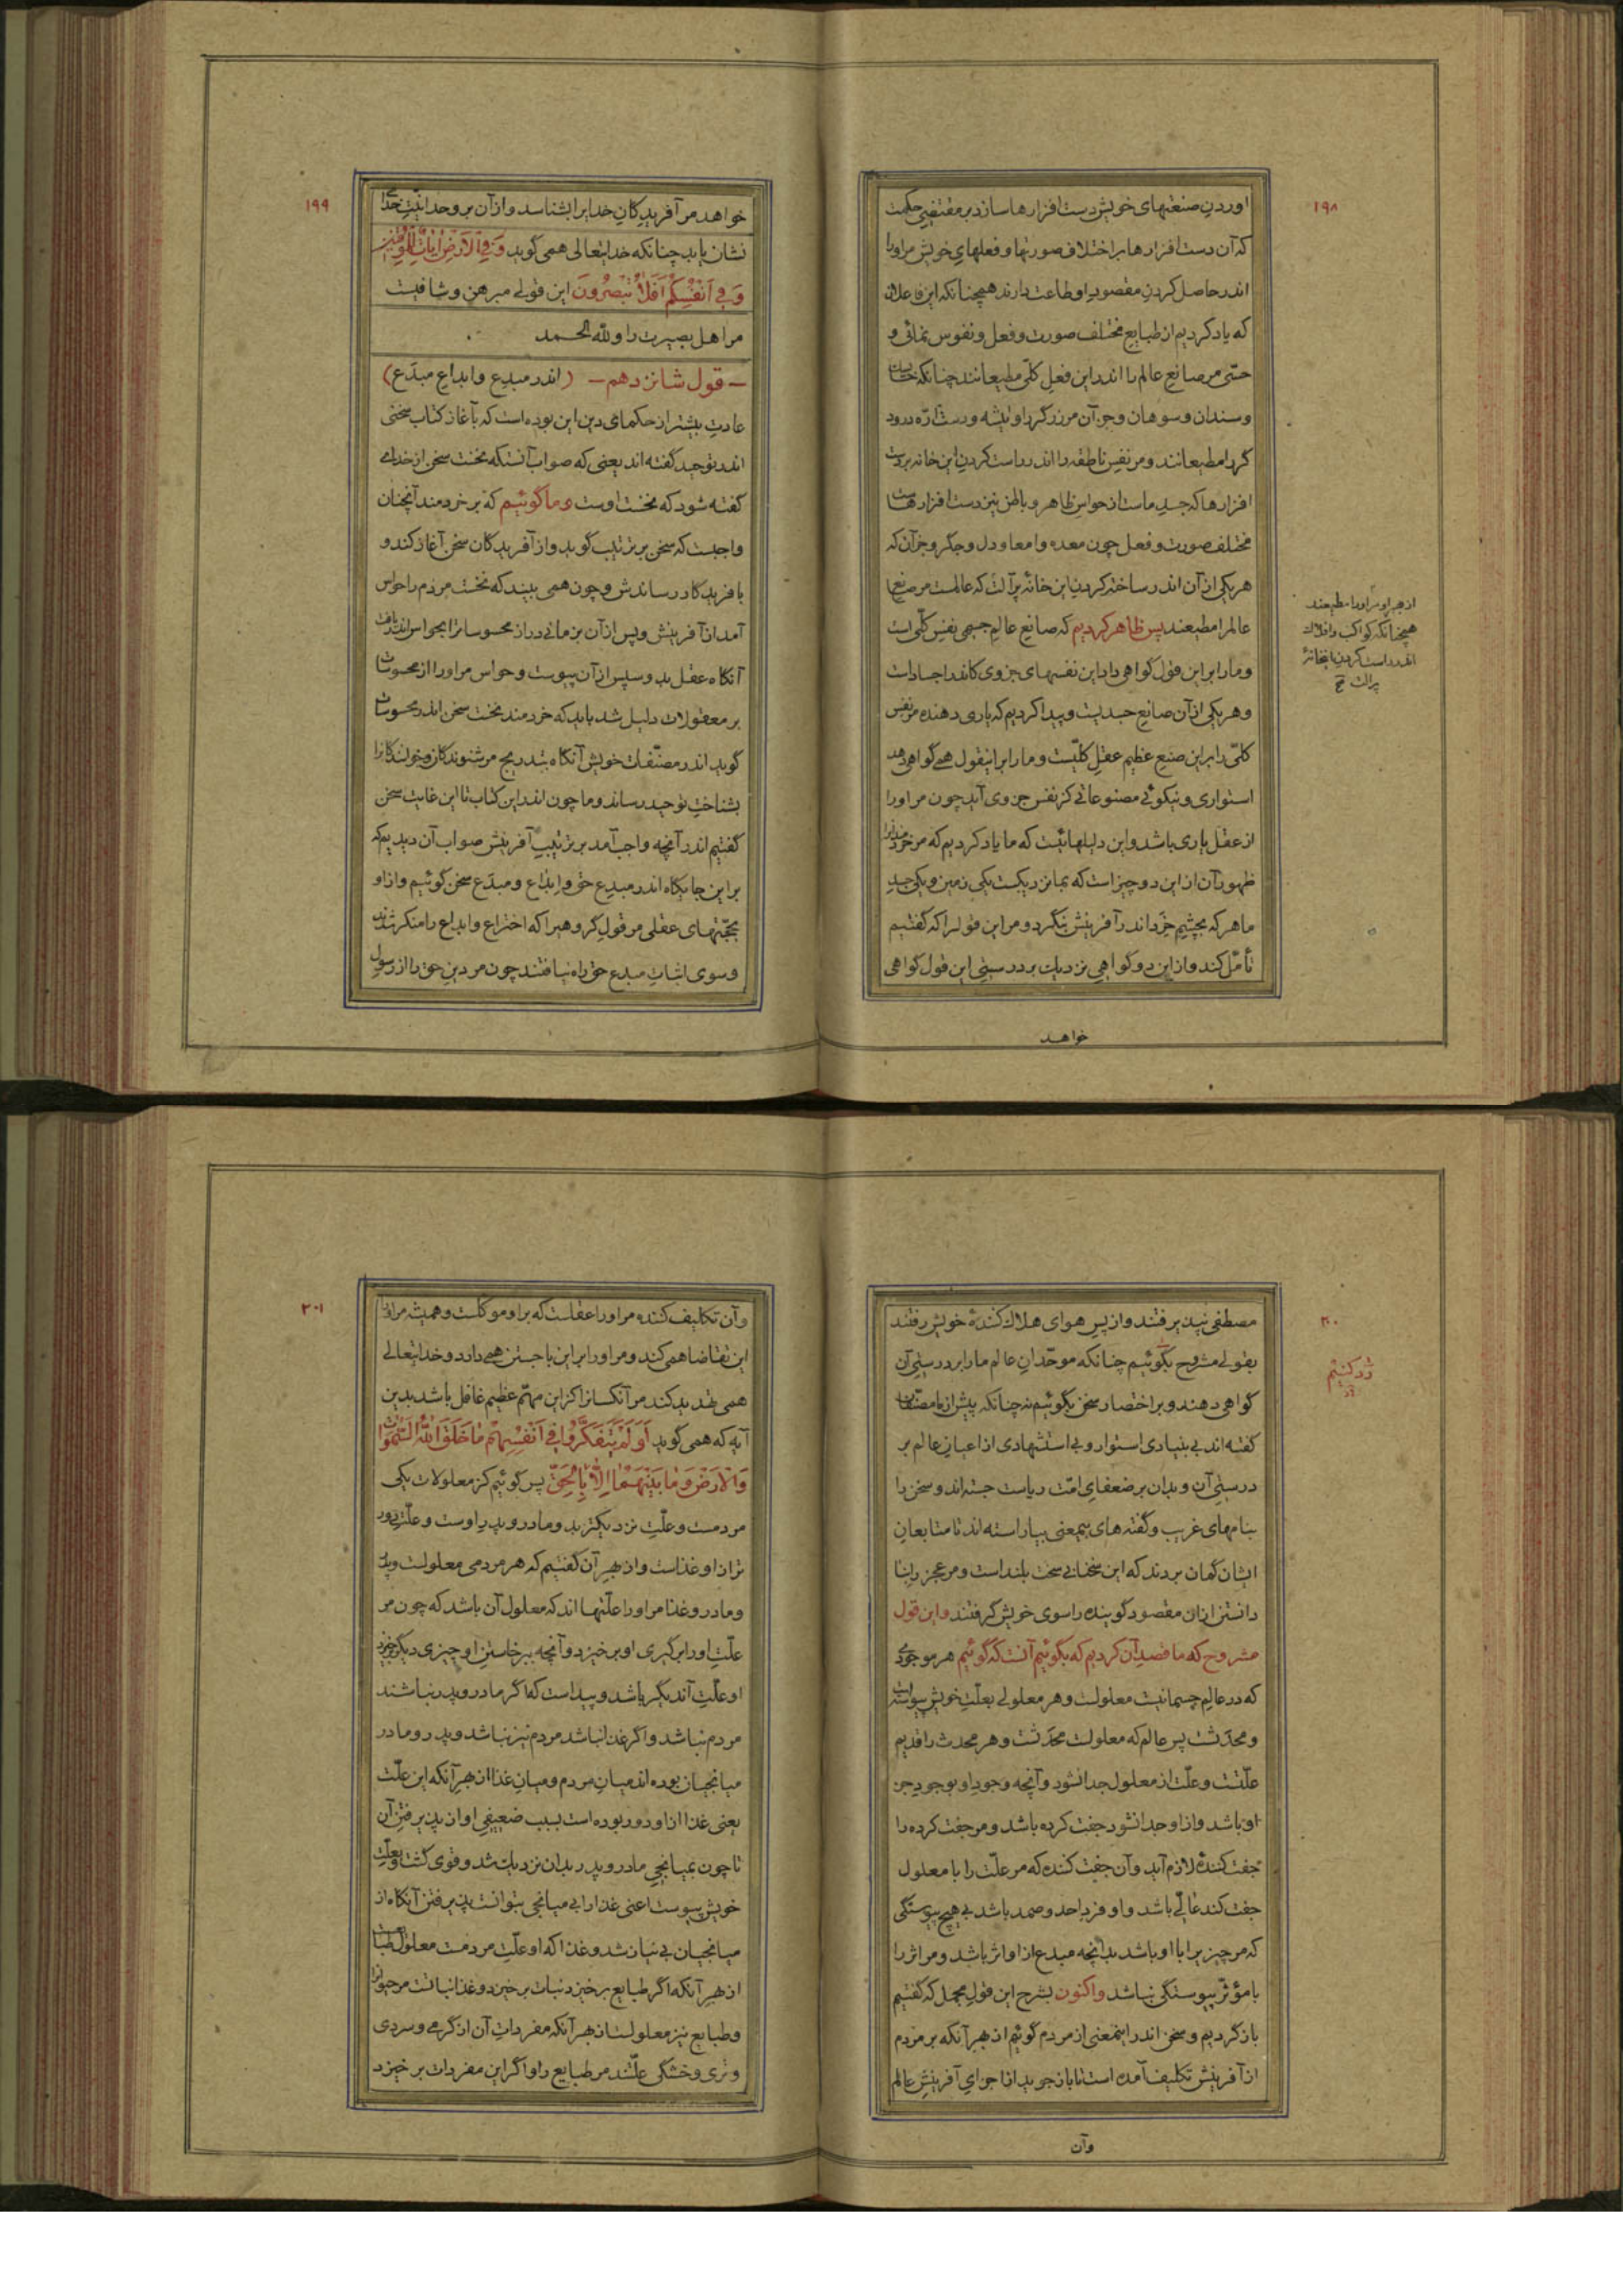 ۱۹۸
اوردن صنعتهای خویش دست افزارها سازد بر مقتضی حکمت
که آن دست افزارها بر اختلاف صورتها و فعلهای خویش مر او را
اندر حاصل کردن مقصود او طاعت دارند همچنانکه این فاعلان
که یاد کردیم از طبایع مختلف صورت و فعل و نفوس نمائی و
حسّی مر صانع عالم را اندر این فعل کلّی مطیعانند چنانکه خایسک
و سندان و سوهان و جز آن مر زرگر را و تیشه و دست ارّه درود
گر را مطیعانند و مر نفس ناطقه را اندر راست کردن این خانه بر دست
افزارها که جسد ماست از حواس ظاهر و باطن نیز دست افزارهاست
مختلف صورت و فعل چون معده و امعا و دل و جگر و جز آن که
هر یکی از آن اندر ساخته کردن این خانه پر آلت که عالمست مر صنع
عالم را مطیعند پس ظاهر کردیم که صانع عالم جسمی نفس کلّی است
و ما را بر این قول گواهی داد این نفسهای جزوی کاندر اجسادات
و هر یکی از آن صانع جسدیست و پیدا کردیم که یاری دهنده مر نفس
کلّی را بر این صنع عظیم عقل کلّیست و ما را بر اینقول همی گواهی دهد
استواری و نیکوئی مصنوعاتی کز نفس جزوی آید چون مر او را
از عقل یاری باشد و این دلیلهائیست که ما یاد کردیم که مر خردمند را
ظهور آن از این دو چیز است که بما نزدیکست یکی زمین و یکی جسد
ما هر که بچشم خرد اندر آفرینش بنگرد و مر این قول را که گفتیم
تأمّل کند و از این دو گواهی نزدیک بر درستی این قول گواهی
خواهد
از جهر او مر او را مطیعند
همچنانکه کواکب و افلاک
اندر راست کردن اینخانهٔ
پر الت صح
۱۹۹
خواهد مر آفریدگان خدایرا بشناسد و از آن بر وحدانیّت خدا
نشان یابد چنانکه خدایتعالی همی گوید وَفِی الْاَرْضِ اٰیَاتٌ لِلْمُوقِنِیْنَ
وَفِی اَنْفُسِکُمْ اَفَلَا تُبْصِرُونَ این قولی مبرهن و شافیست
مر اهل بصیرت را و للّه الحمد
– قول شانزدهم – (اندر مبدِع و ابداع مبدَع)
عادت بیشتر از حکمای دین این بوده است که بآغاز کتاب سخن
اندر توحید گفته اند یعنی که صواب آنستکه نخست سخن از خدای
گفته شود که نخست اوست و ما گوئیم که بر خردمند آنچنان
واجبست که سخن بر ترتیب گوید و از آفریدگان سخن آغاز کند و
بافریدگار رساندش و چون همی بیند که نخست مردم را حواس
آمد از آفرینش و پس از آن بزمانی دراز محسوسات را بحواس اندر یافت
آنگاه عقل بد و سپس از آن پیوست و حواس مر او را از محسوسات
بر معقولات دلیل شد باید که خردمند نخست سخن اندر محسوسات
گوید اندر مصنّفات خویش آنگاه بتدریج مر شنوندگان و خوانندگانرا
بشناخت توحید رساند و ما چون اندر این کتاب تا این غایت سخن
گفتیم اندر آنچه واجب آمد بر ترتیب آفرینش صواب آن دیدیم که
بر این جایگاه اندر مبدع حق و ابداع و مبدَع سخن گوئیم و از او
بحجّتهای عقلی مر قول گروهیرا که اختراع و ابداع را منکر شدند
و سوی اثبات مبدع حق راه نیافتند چون مر دین حق را از رسول
۲۰۰
مصطفی نپذیرفتند و از پس هوای هلاک کنندهٔ خویش رفتند
بقولی مشروح بگوئیم چنانکه موحّدان عالم ما را بر درستی آن
گواهی دهند و بر اختصار سخن بگوئیم نه چنانکه پیش از ما مصنّفان
گفته اند بی بنیادی استوار و بی استشهادی از اعیان عالم بر
درستی آن و بدان بر ضعفای امّت ریاست جسته اند و سخن را
بنامهای غریب و گفته های بیمعنی بیاراسته اند تا متابعان
ایشان گمان بردند که این سخنانی سخت بلند است و مر عجز را بنا
دانستن ازان مقصود گوینده را سوی خویش گرفتند و این قول
مشروح که ما قصد آن کردیم که بگوئیم آنست که گوئیم هر موجودی
که در عالم جسمانیست معلولست و هر معلولی بعلّت خویش پیوسته است
و محدَثست پس عالم که معلولست محدَثست و هر محدث را قدیم
علّتست و علّت از معلول جدا نشود و آنچه وجود او بوجود جز
او باشد و از او جدا نشود جفت کرده باشد و مر جفت کرده را
جفت کنندهٔ لازم آید و آن جفت کننده که مر علّت را با معلول
جفت کند عالی باشد و او فرد احد و صمد باشد بی هیچ پیوستگی
که مر چیزیرا با او باشد بدانچه مبدع از او اثر باشد و مر اثر را
با مؤثّر پیوستگی نباشد واکنون بشرح این قول مجمل که گفتیم
باز گردیم و سخن اندر اینمعنی از مردم گوئیم از جهر آنکه بر مردم
از آفرینش تکلیف آمده است تا باز جوید از اجزای آفرینش عالم
وآن
رد کنیم
۲۰۱
وآن تکلیف کننده مر او را عقلست که بر او موکّلست و همیشه مر او را
این تقاضا همی کند و مر او را بر این باز جستن همی دارد و خدایتعالی
همی تهدید کند مر آنکسانرا کز این مهمّ عظیم غافل باشد بدین
آیه که همی گوید اَوَلَمْ یَتَفَکَّرُوا فِی اَنْفُسِهِمْ مَا خَلَقَ اللّٰهُ السَّمٰوَاتِ
وَالْاَرْضَ وَمَا بَیْنَهُمَا اِلَّا بِالْحَقِّ پس گوئیم کز معلولات یکی
مردمست و علّت نزدیکتر بد و مادر و پدر اوست و علّت دور
تر از او غذاست و از بهر آن گفتیم که هر مردمی معلولست و پدر
و مادر و غذا مر او را علّتها اند که معلول آن باشد که چون مر
علّت او را بر گیری او بر خیزد و آنچه ببر خاستن او چیزی دیگر بر خیزد
او علّت آن دیگر باشد و پیداست که اگر مادر و پدر نباشند
مردم نباشد و اگر غذا نباشد مردم نیز نباشد و پدر و مادر
میانجیان بوده اند میان مردم و میان غذا از بهر آنکه این علّت
یعنی غذا از او دور بوده است بسبب ضعیفی او از پذیرفتن آن
تا چون بمیانجی مادر و پدر بدان نزدیک شد و قوی گشت و بعلّت
خویش پیوست اعنی غذا را بی میانجی بتوانست پذیرفتن آنگاه از
میانجیان بی نیاز شد و غذا که او علّت مردمست معلول طبایعست
از بهر آنکه اگر طبایع بر خیزد نبات بر خیزد و غذا نباتست مر حیوانرا
و طبایع نیز معلولست از بهر آنکه مفردات آن از گرمی و سردی
و تری و خشکی علّتند مر طبایع را و اگر این مفردات بر خیزد